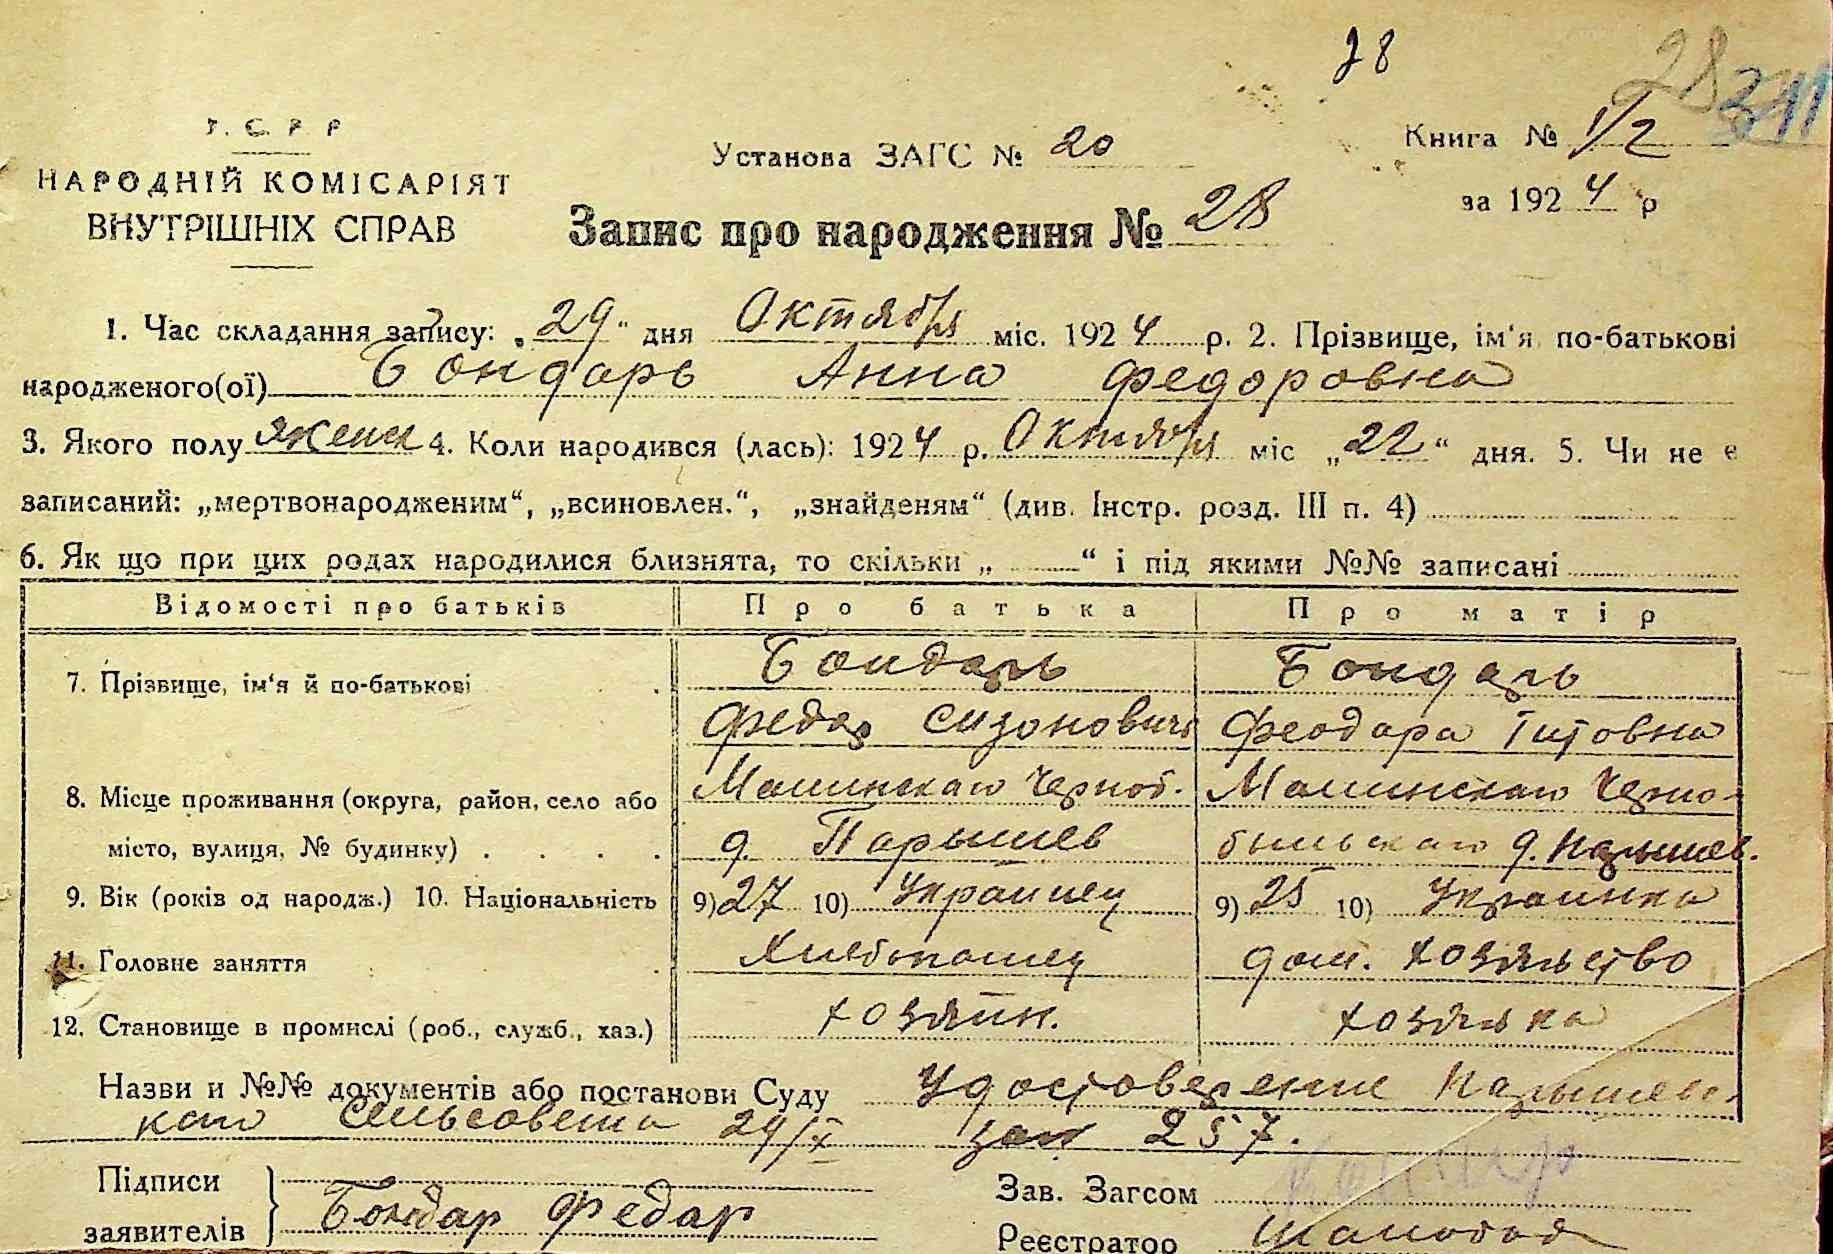 28
28 311
У. С. Р. Р
НАРОДНІЙ КОМІСАРІЯТ
ВНУТРІШНІХ СПРАВ
Установа ЗАГС № 20
Книга № 1/2
за 1924 р
Запис про народження № 28
1. Час складання запису: „29" дня Октября міс. 1924 р. 2. Прізвище, ім'я по-батькові
народженого(ої) Бондарь Анна Федоровна
3. Якого полу женск 4. Коли народився (лась): 1924 р. Октября міс „22" дня. 5. Чи не є
записаний: „мертвонародженим", „всиновлен.", „знайденям" (див. Інстр. розд. III п. 4)
6. Як що при цих родах народилися близнята, то скільки „ " і під якими №№ записані
Відомості про батьків Про батька Про матір
7. Прізвище, ім'я й по-батькові Бондарь Бондарь
Федор Сизоновичъ Феодора Титовна
8. Місце проживання (округа, район, село або Малинскаго Черноб. Малинскаго Черно-
місто, вулиця, № будинку) д. Парышев быльскаго д. Парышев.
9. Вік (років од народж.) 10. Національність 9) 27 10) Украинец 9) 25 10) Украинка
11. Головне заняття Хлебопашец дом. хозяйство
12. Становище в промислі (роб., служб., хаз.) хозяин. хозяйка
Назви и №№ документів або постанови Суду Удостоверение Парышев-
каго сельсовета 29/X за № 257.
Підписи
заявителів Бондар Федар
Зав. Загсом
Реєстратор